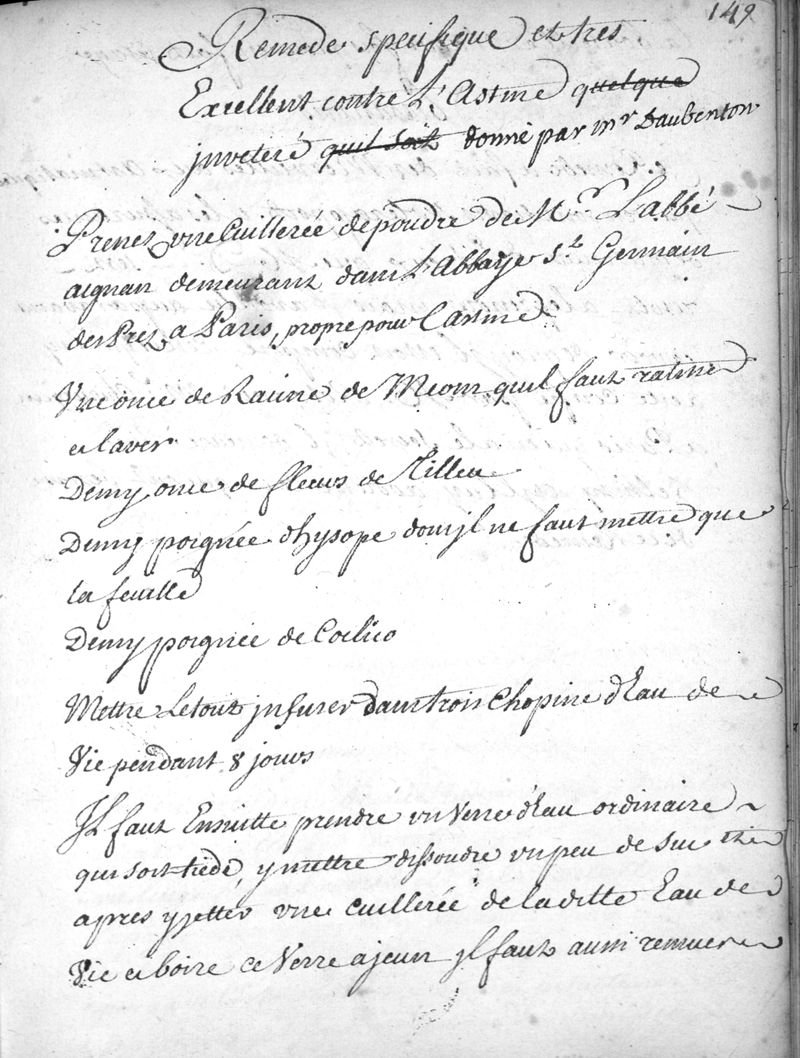 149
Remede specifique et tres
Excellent contre L'Astme quelque
jnveteré quil soit donné par mr Daubenton
Prenez vne Cuillereé de poudre de Mr L'abbé
aignan demeurant dans L'Abbaye St Germain
des Prez a Paris, propre pour l'astme
Vne once de Racine de Meom quil faut ratisser
et laver
Demy once de fleurs de Tilleu
Demy poignée dhysope dont jl ne faut mettre que
la feuille
Demy poignée de Coclico
Mettre Le tout jnfuser dans trois Chopine d'Eau de
Vie pendant 8 jours
Jl faut Ensuitte prendre vn Verre d'eau ordinaire
qui soit tiede, y mettre dissoudre vn peu de sucre
apres y jetter vne cuillerée de la ditte Eau de
Vie et boire ce Verre a jeun jl faut aussi remuer